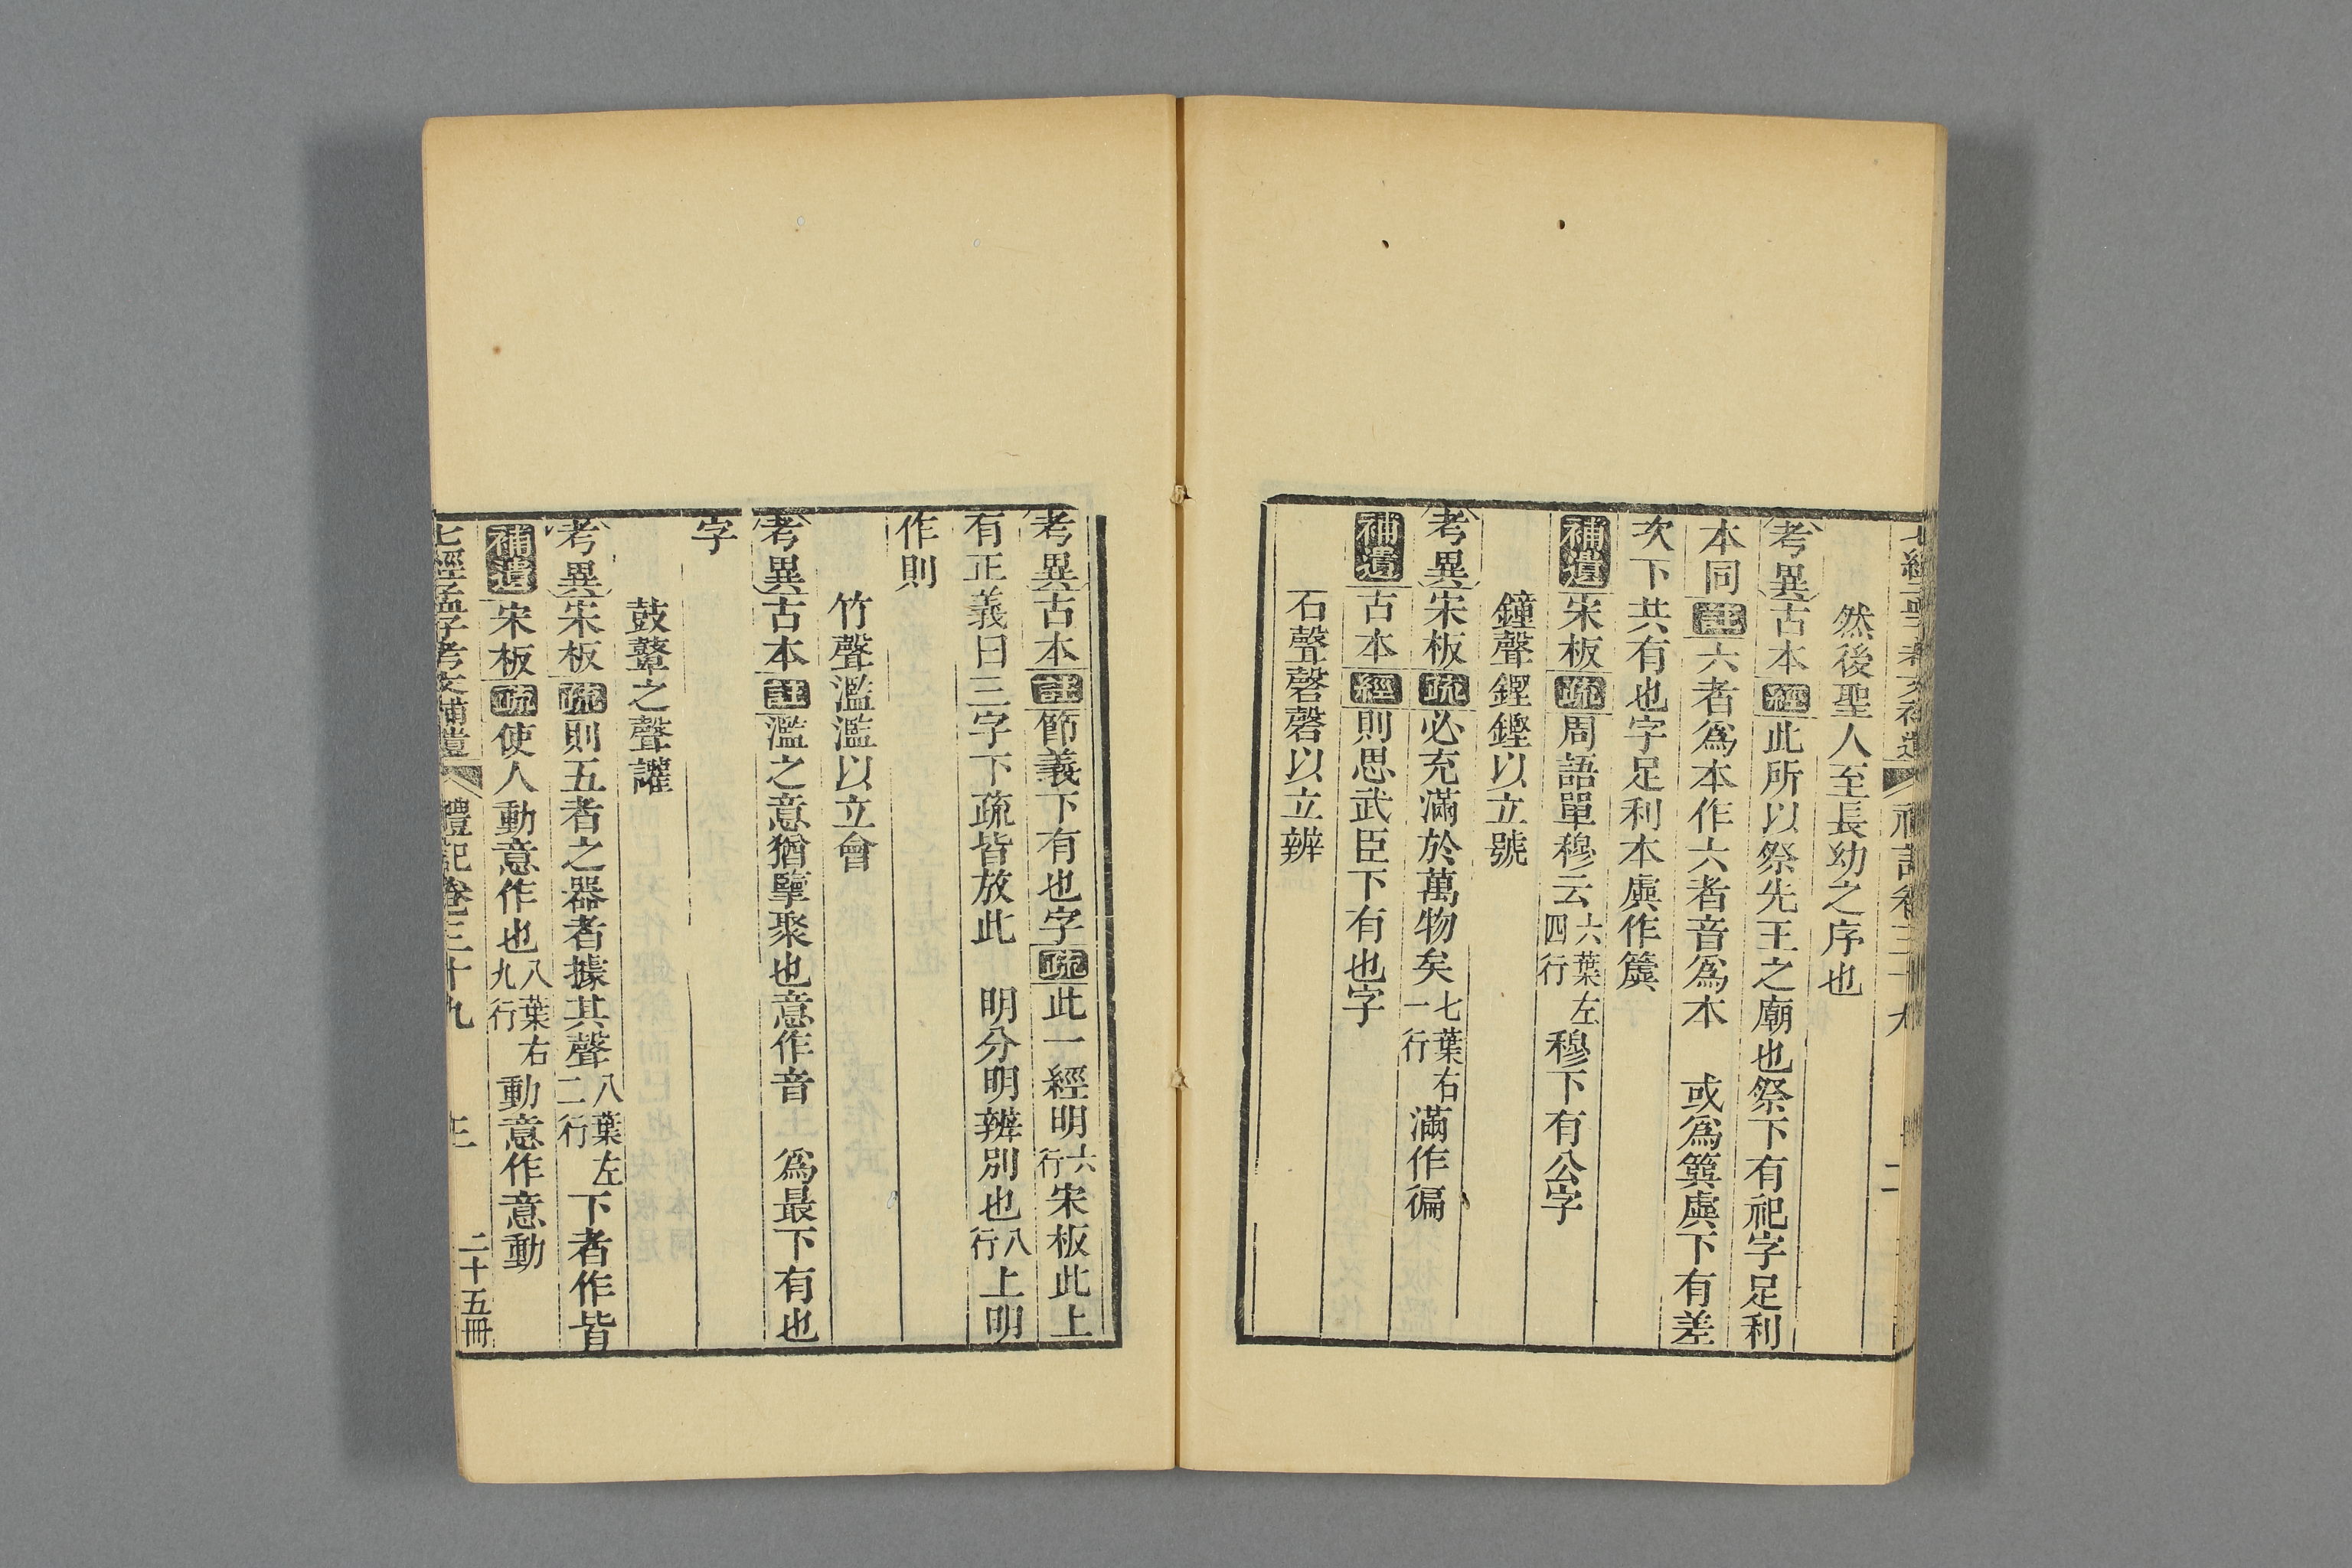 然後聖人至長幼之序也
考異古本經此所以祭先王之廟也祭下有祀字足利
本同註六者爲本作六者音爲本　或爲簨虡下有差
次下共有也字足利本虡作簴
補遺宋板疏周語單穆云六葉左四行穆下有公字
鐘聲鏗鏗以立號
考異宋板疏必充滿於萬物矣七葉右一行滿作徧
補遺古本經則思武臣下有也字
石聲磬磬以立辨
考異古本註節義下有也字疏此一經明六行宋板此上
有正義曰三字下疏皆放此　明分明辨別也八行上明
作則
竹聲濫濫以立會
考異古本註濫之意猶擥聚也意作音　爲最下有也
字
鼓鼙之聲讙
考異宋板疏則五者之器者據其聲八葉左二行下者作皆
補遺宋板疏使人動意作也八葉右九行動意作意動
七經孟子考文補遺　禮記卷三十九　三　二十五冊